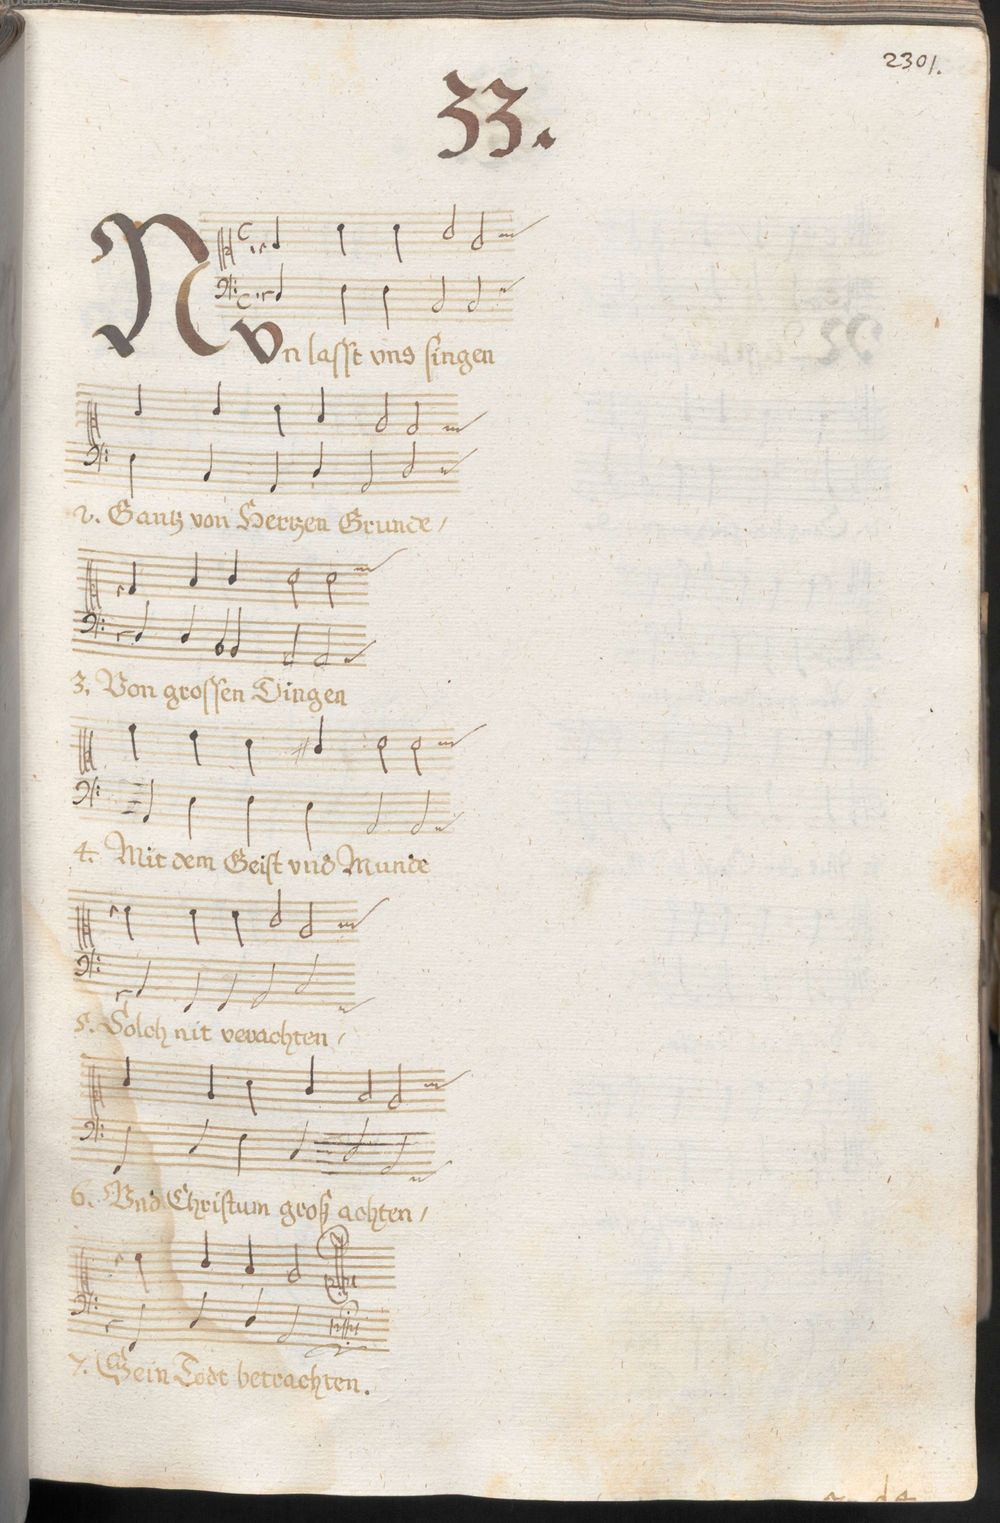 2301.
33.
Nvn lasst vns singen
2. Gantz von Hertzen Grunde /
3. Von grossen Dingen
4. Mit dem Geist vnd Munde
5. Solch nit verachten /
6. Vnd Christum groß achten /
7. Sein Todt betrachten.